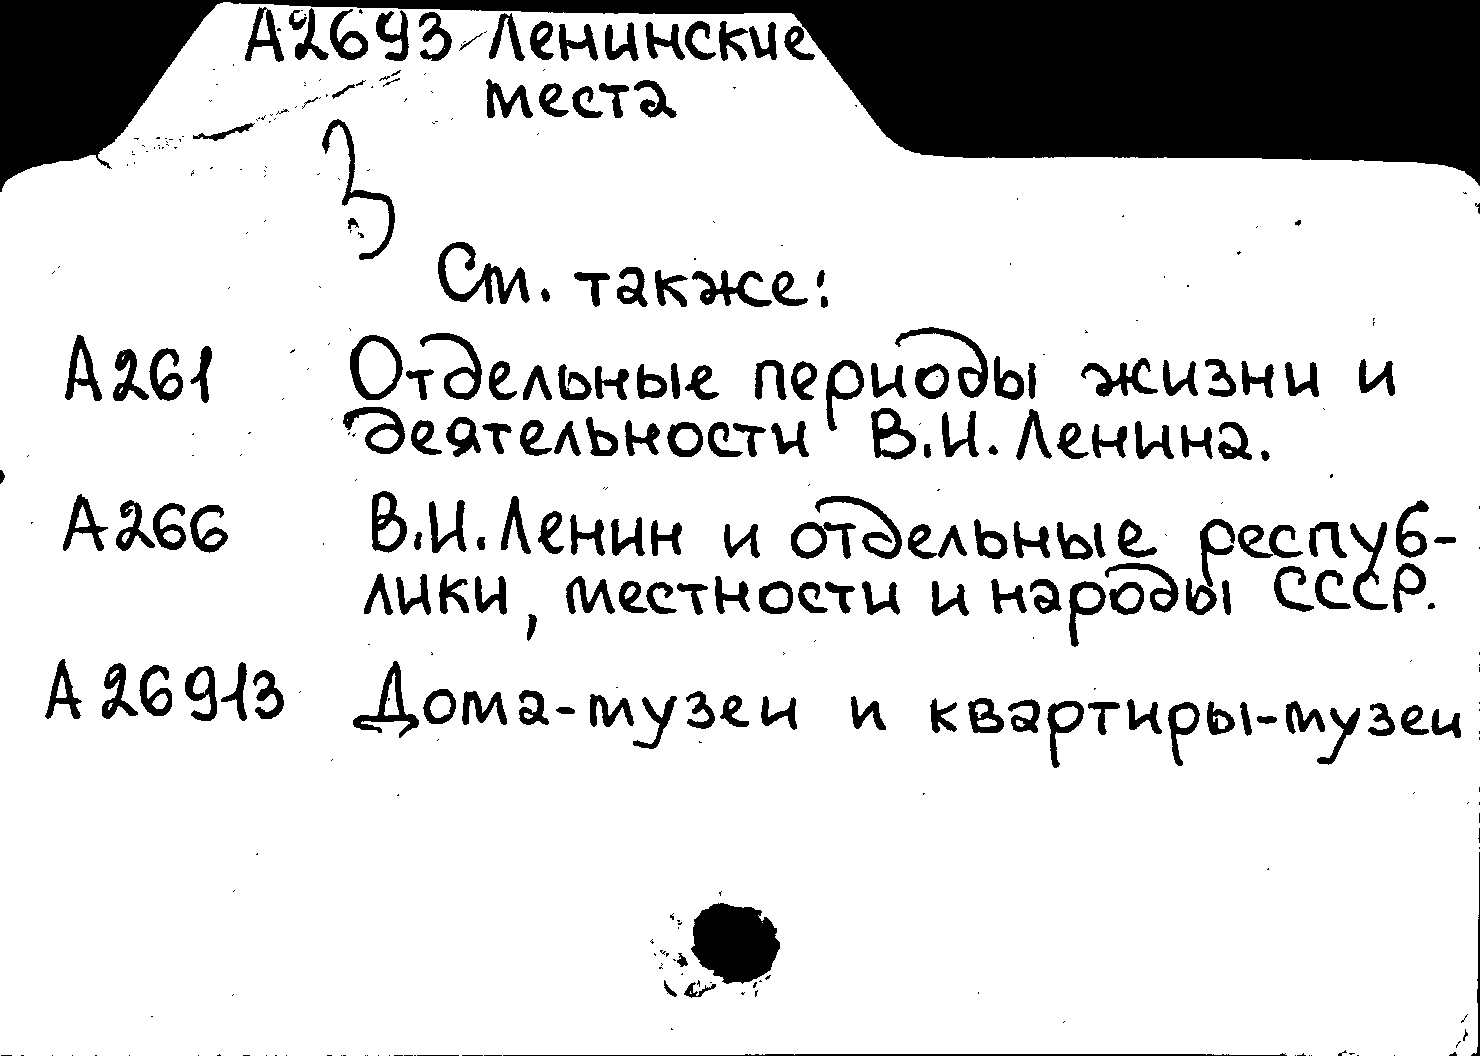 А2693 Ленинские
места
З
См. также:
А261 Отдельные периоды жизни и
деятельности В.И. Ленина.
А266 В.И. Ленин и отдельные респуб-
лики, местности и народы СССР.
А26913 Дома-музеи и квартиры-музеи